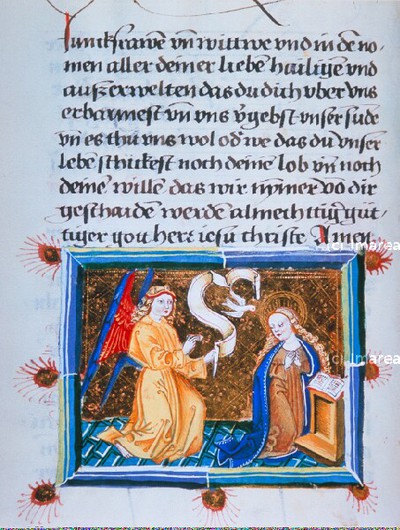 Junckfrawen vn̄ wittwe vnd in dē no-
men aller deiner liebē hailigē vnd
auſzerwelten das du dich vber vns
erbarmeſt vn̄ vns v̈gebſt vnſer ſūde
vn̄ es thū vns wol od' we das du vnſer
lebē ſchickeſt noch deinē lob vn̄ noch
deinē willē das wir nym̄er vō dir
geſchaidē werdē almechttig' güt-
tiger gott herr ieſu chriſte Amen